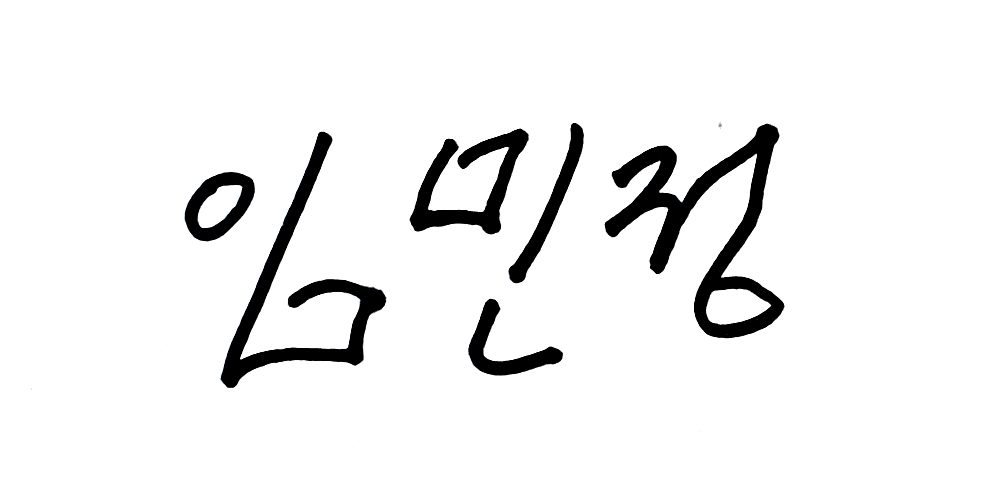 임민정